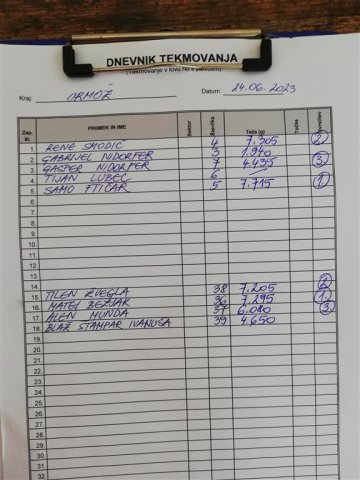 DNEVNIK TEKMOVANJA
(Tekmovanje v lovu rib s plovcem)
Kraj: ORMOŽ Datum: 24.06.2023
Zap. št. PRIIMEK IN IME Sektor Številka Teža (g) Točke
1. RENE SMODIC 4 7.305 2
2. GABRIJEL NIDORFER 3 1.940
3. GAŠPER NIDORFER 7 4.435 3
4. TIJAN LUBEC 6 /
5. SAMO FTIČAR 5 7.715 1
6.
7.
8.
9.
10.
11.
12.
13.
14.
15. TILEN ŽVEGLA 38 7.205 2
16. MATEJ BEZJAK 36 7.295 1.
17. ALEN MUNDA 37 6.080 3
18. BLAŽ ŠTAMPAR IVANUŠA 39 4.650
19.
20.
21.
22.
23.
24.
25.
26.
27.
28.
29.
30.
31.
32.